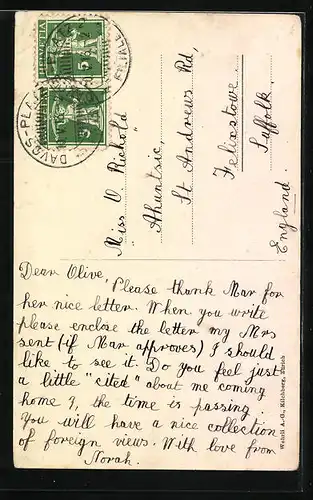 Miss O. Richold
"Ahuntsic,"
St Andrews Rd,
Felixstowe.
Suffolk.
England.
Dear Olive,
Please thank Mar for
her nice letter. When you write
please enclose the letter my Mrs
sent (if Mar approves) I should
like to see it. Do you feel just
a little "cited" about me coming
home?, the time is passing.
You will have a nice collection
of foreign views. With love from
Norah.
Wehrli A.-G., Kilchberg, Zürich
DAVOS-PLATZ
HELVETIA
5
5